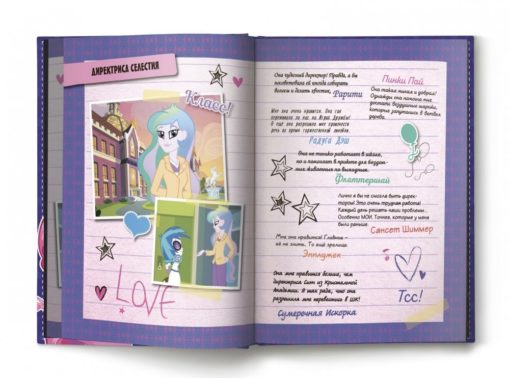 ДИРЕКТРИСА СЕЛЕСТИЯ
Класс!
LOVE
Она чудесный директор! Правда, я бы
посоветовала ей иногда собирать
волосы и делать хвостик,
Рарити
Пинки Пай
Она такая милая и добрая!
Однажды она помогла мне
достать воздушные шарики,
которые запутались в ветвях
дерева.
Мне она очень нравится. Она так
переживала за нас на Играх Дружбы!
А ещё она разрешила мне произнести
речь во время торжественной линейки.
Радуга Дэш
Она не только работает в школе,
но и помогает в приюте для бездом-
ных животных по выходным.
Флаттершай
Лично я бы не смогла быть дирек-
тором! Это очень трудная работа!
Каждый день решать чужие проблемы...
Особенно МОИ. Точнее, которые у меня
были раньше.
Сансет Шиммер
Мне она нравится! Главное –
её не злить. То ещё зрелище.
Эпплджек
Она мне нравится больше, чем
директриса Синч из Кристальной
Академии. Я так рада, что она
разрешила мне перевестись в ШК!
Сумеречная Искорка
Тсс!